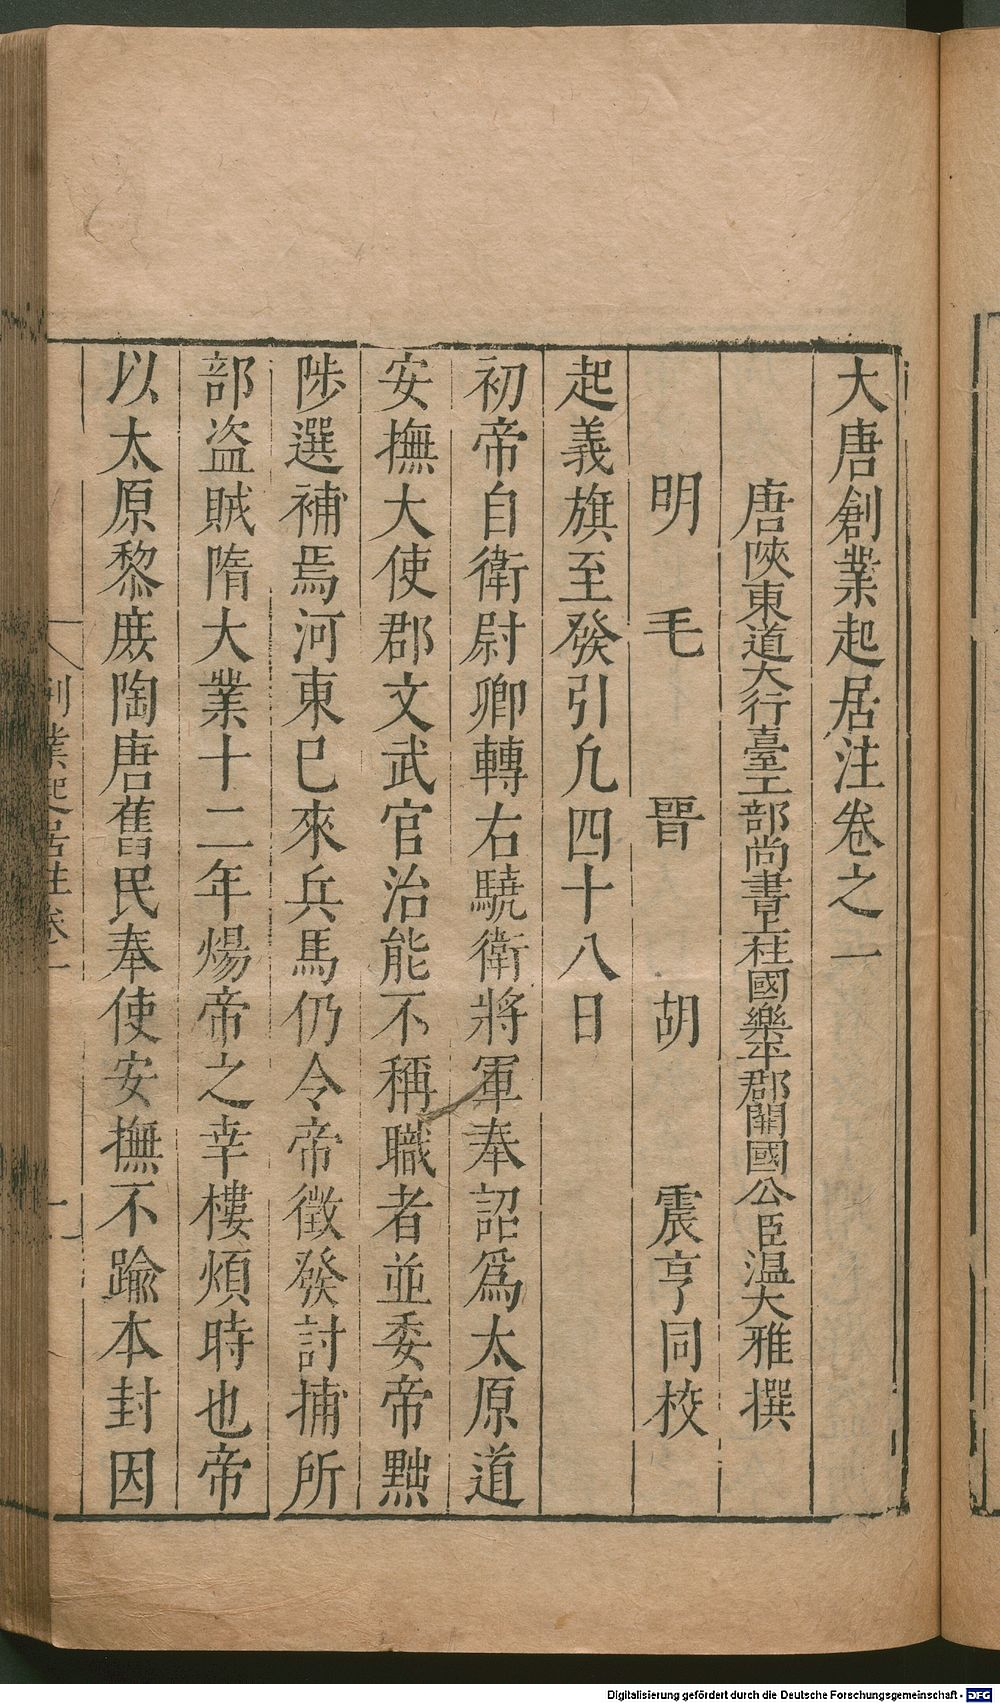 大唐創業起居注卷之一
唐陝東道大行臺工部尚書上柱國樂平郡開國公臣温大雅撰
明 毛 晉 胡 震亨同校
起義旗至發引凢四十八日
初帝自衛尉卿轉右驍衛將軍奉詔爲太原道
安撫大使郡文武官治能不稱職者並委帝黜
陟選補焉河東已來兵馬仍令帝徵發討捕所
部盗賊隋大業十二年煬帝之幸樓煩時也帝
以太原黎庶陶唐舊民奉使安撫不踰本封因
創業起居注卷一
Digitalisierung gefördert durch die Deutsche Forschungsgemeinschaft - DFG